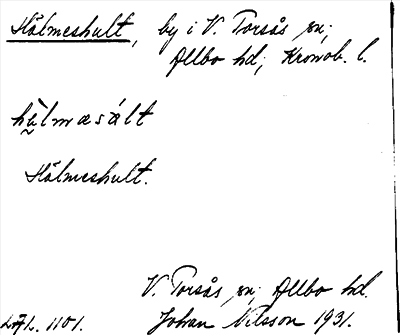 Hälmeshult, by i V. Torsås sn;
Allbo hd; Kronob. l.
hä̰lmasált
Hälmeshult.
V. Torsås sn; Allbo hd.
Johan Nilsson 1931.